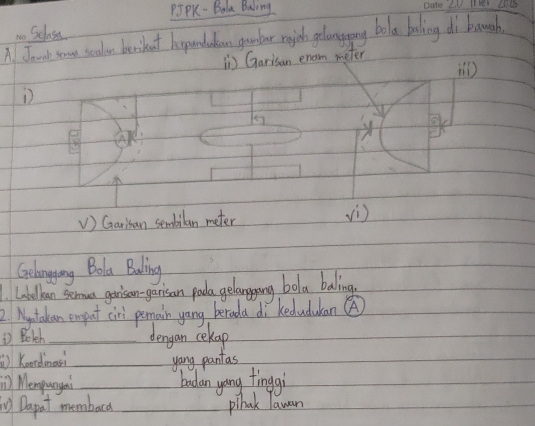 PJPK - Bola Baling
No Selasa Date 20 Mei 2025
A. Jawab semua soalan berikut berpandukan gambar rajah gelanggang bola baling di bawah.
ii) Garisan enam meter
iii)
i)
A
v) Garisan sembilan meter
vi)
Gelanggang Bola Baling
1. Labelkan semua garisan-garisan pada gelanggang bola baling.
2. Nyatakan empat ciri pemain yang berada di kedudukan A
i) Boleh ________ dengan cekap
ii) Koordinasi ________ yang pantas
iii) Mempunyai ________ badan yang tinggi
iv) Dapat membaca ________ pihak lawan